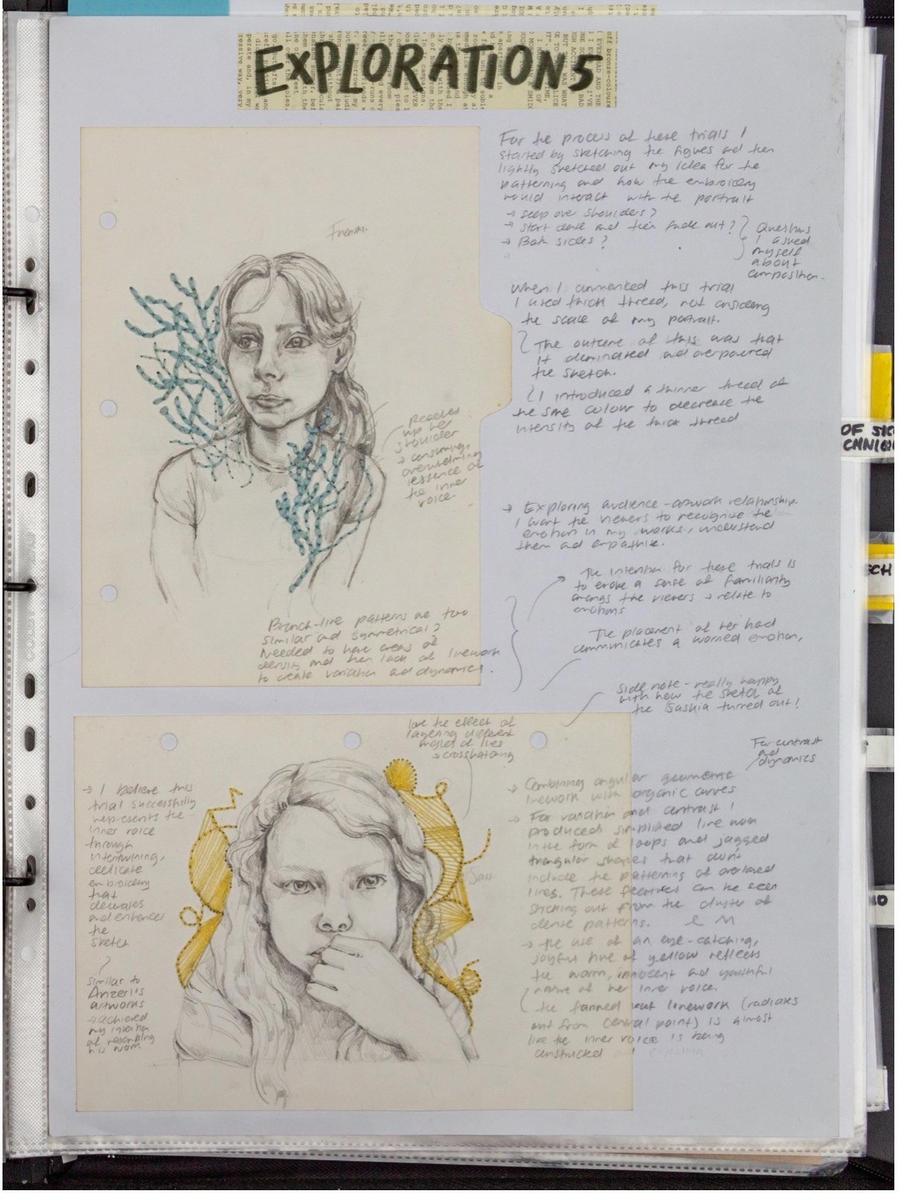 EXPLORATIONS
For the process of these trials I
started by sketching the figures and then
lightly sketched out my idea for the
patterning and how the embroidery
would interact with the portrait
→ seep over shoulders?
→ start dense and then fade out?
→ Both sides?
Questions
I asked
myself
about
composition.
When I commenced this trial
I used thick thread, not considering
the scale of my portrait.
The outcome of this was that
it dominated and overpowered
the sketch.
I introduced a thinner thread of
the same colour to decrease the
intensity of the thick thread
reaches
up her
shoulder
→ consuming,
overwhelming
essence of
the inner
voice
→ Exploring audience-artwork relationship.
I want the viewers to recognise the
emotion in my works, understand
them and empathise.
The intention for these trials is
to evoke a sense of familiarity
amongs the viewers → relate to
emotions
The placement of her hand
communicates a worried emotion,
Branch-like patterns are too
similar and symmetrical?
Needed to have areas of
density and then lack of linework
to create variation and dynamics.
Side note - really happy
with how the sketch of
the Saskia turned out!
love the effect of
layering different
angles of lines
→ crosshatching
For contrast
and
dynamics
→ I believe this
trial successfully
represents the
inner voice
through
intertwining,
delicate
embroidery
that
decorates
and enhances
the
sketch
similar to
Anzeri's
artworks
→ achieved
my intention
of resembling
his work
→ Combining angular geometric
linework with organic curves
→ For variation and contrast I
produced simplified line work
in the form of loops and jagged
triangular shapes that don't
include the patterning of overlaid
lines. These features can be seen
sticking out from the cluster of
dense patterns.
→ the use of an eye-catching,
joyful hue of yellow reflects
the warm, innocent and youthful
nature of her inner voice.
the fanned out linework (radiates
out from central point) is almost
like the inner voice is being
constructed and
OF SK
CMNI
SCH